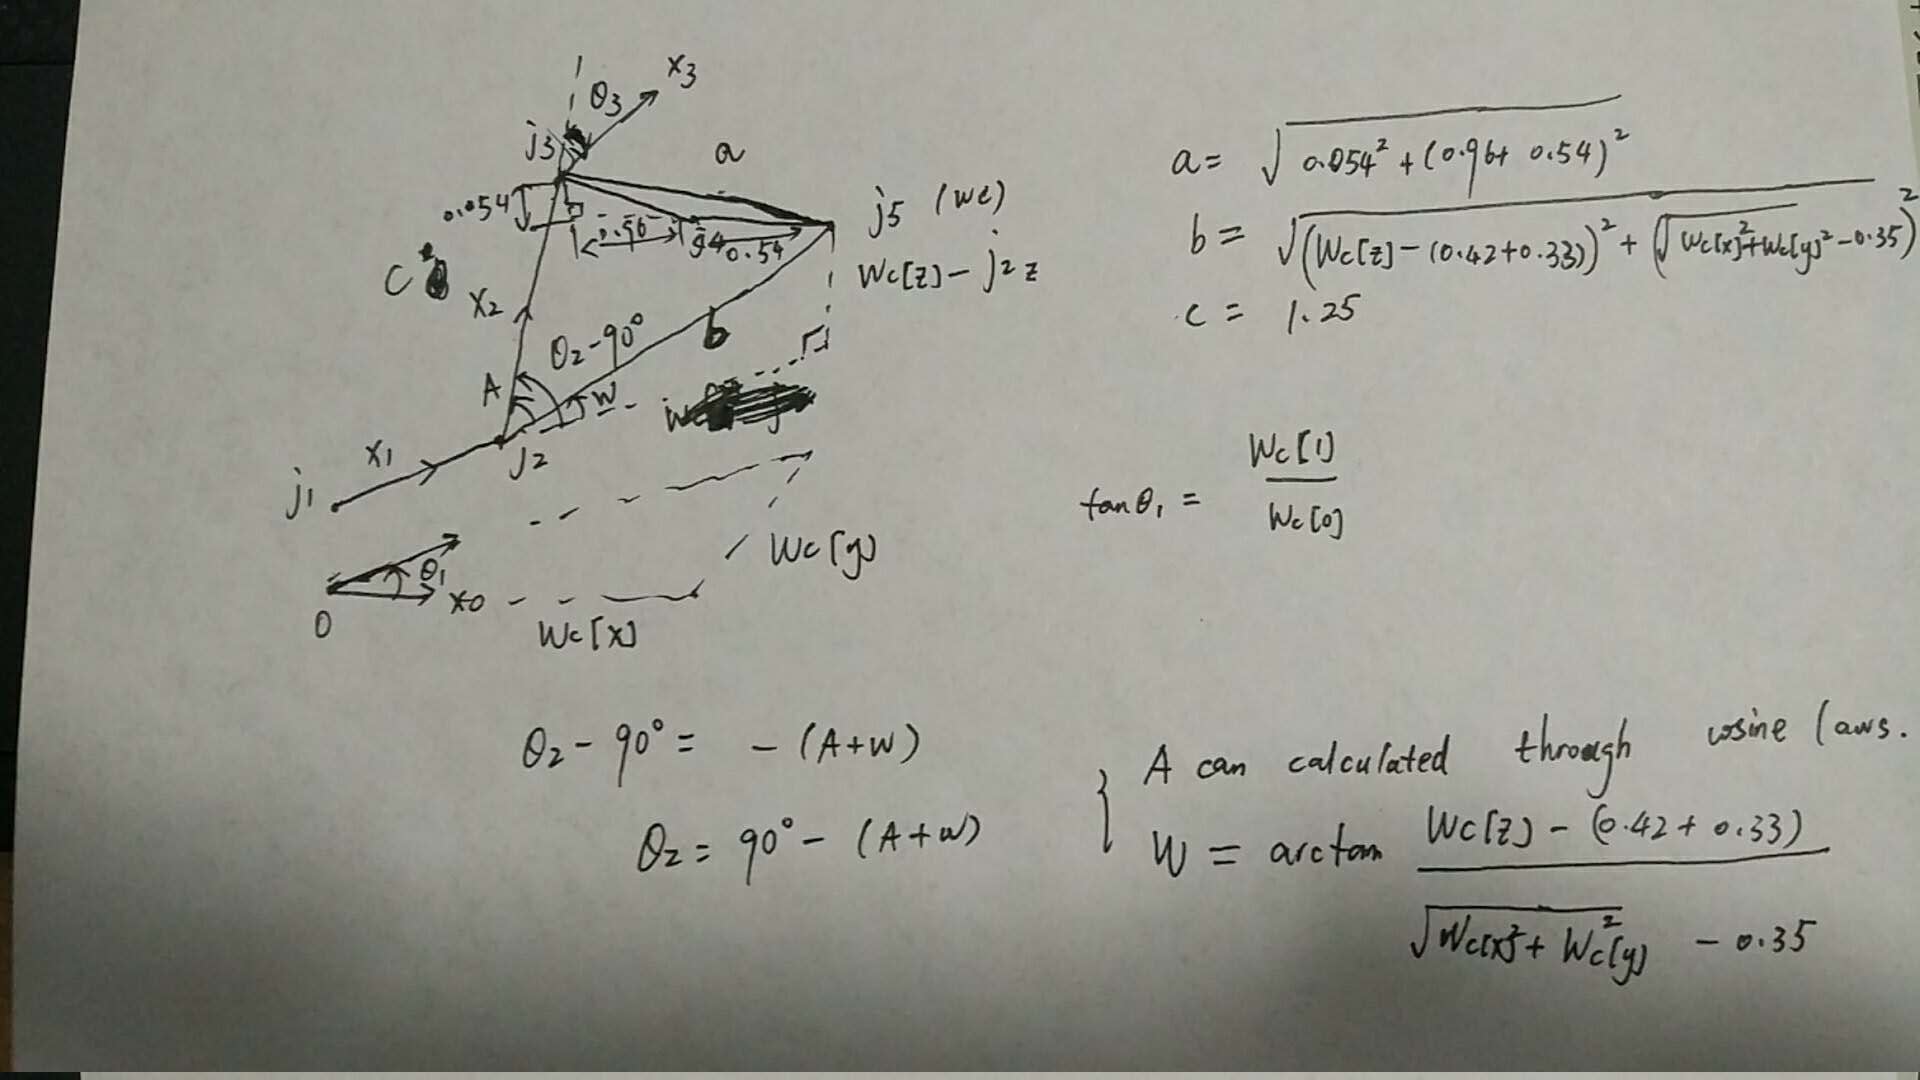 x3
θ3
j3
a
0.054
0.96
j4
0.54
j5 (wc)
Wc[z] - j2 z
C
x2
θ2-90°
b
A
w
x1
j2
j1
Wc[y]
θ1
x0
0
Wc[x]
a = √(0.054² + (0.96+0.54)²)
b = √((Wc[z] - (0.42+0.33))² + (√(Wc[x]²+Wc[y]²) - 0.35)²)
c = 1.25
tanθ1 = Wc[1] / Wc[0]
θ2 - 90° = - (A+w)
θ2 = 90° - (A+w)
{ A can calculated through cosine laws.
W = arctan (Wc[z] - (0.42+0.33)) / (√(Wc[x]² + Wc[y]²) - 0.35)